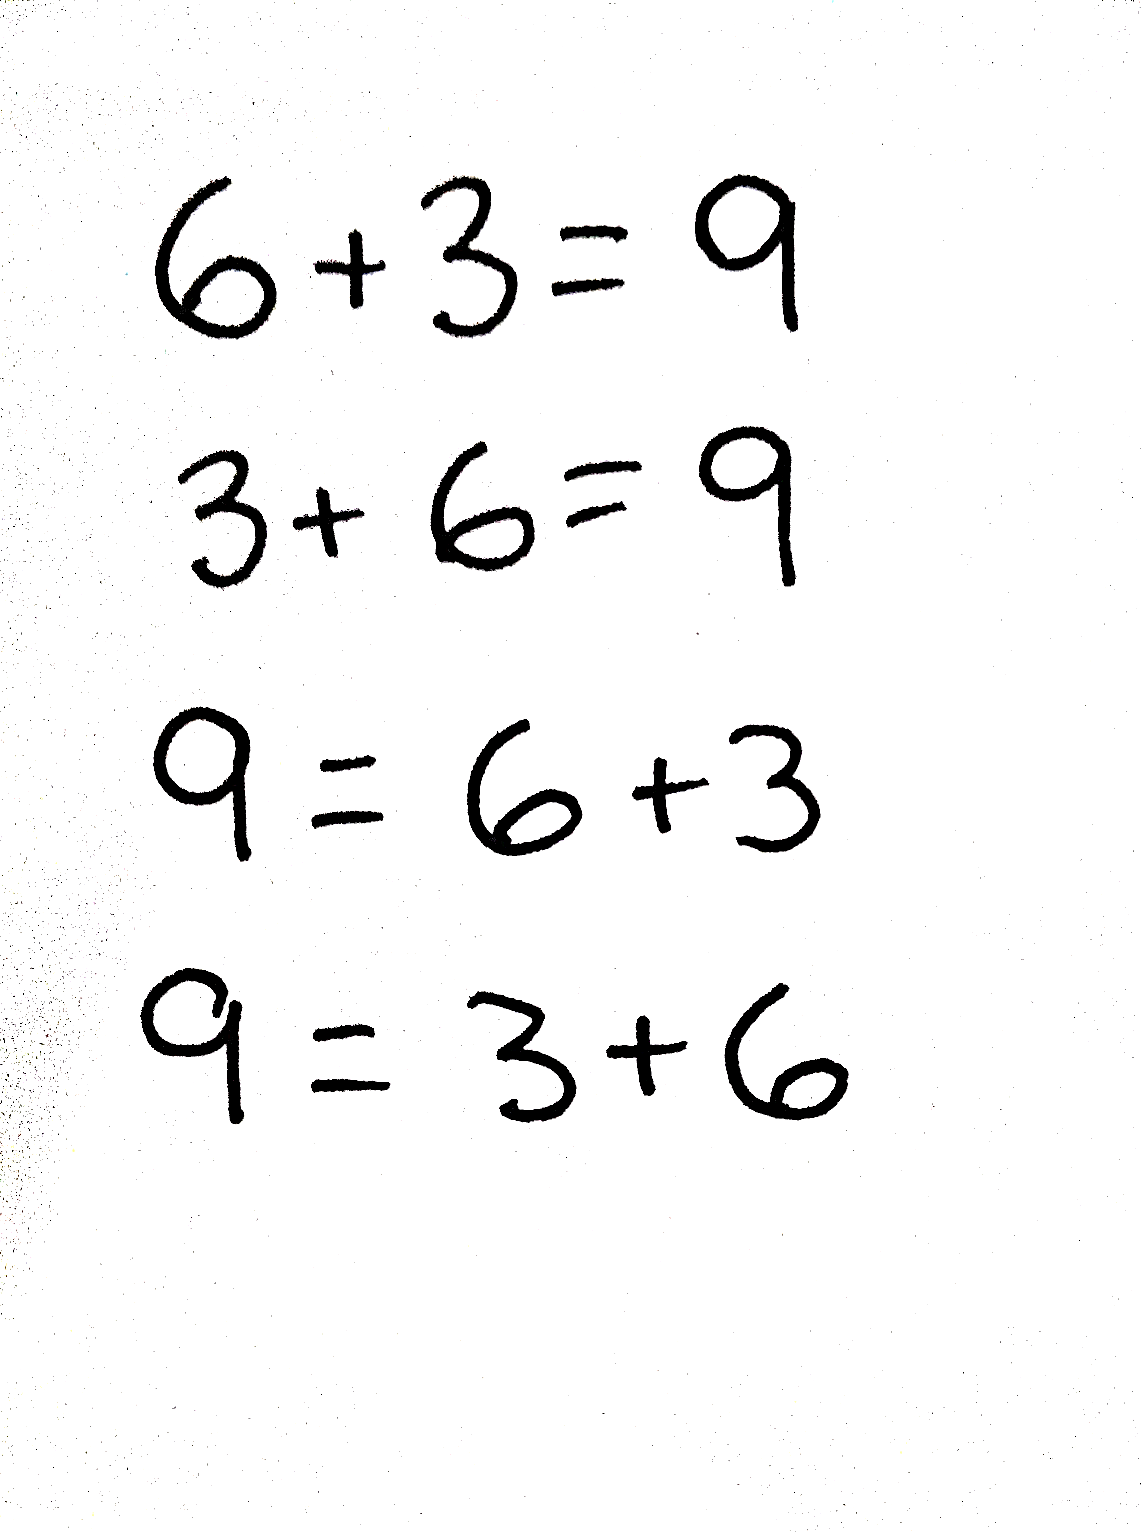 6 + 3 = 9
3 + 6 = 9
9 = 6 + 3
9 = 3 + 6